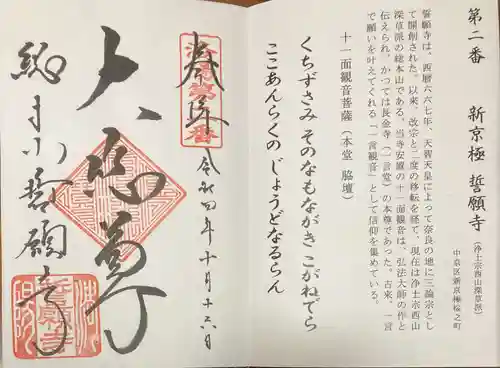 第二番 新京極 誓願寺(浄土宗西山深草派)
中京区新京極桜之町
誓願寺は、西暦六六七年、天智天皇によって奈良の地に三論宗とし
て開創された。以来、改宗と二度の移転を経て、現在は浄土宗西山
深草派の総本山である。当寺安置の十一面観音は、弘法大師の作と
伝えられ、かつては長金寺(一言堂)の本尊であった。古来、一言
で願いを叶えてくれる「一言観音」として信仰を集めている。
十一面観音菩薩(本堂 脇壇)
くちずさみ そのなもながき こがねでら
ここあんらくの じょうどなるらん
奉拝
令和四年十月十六日
大悲尊
総本山 誓願寺